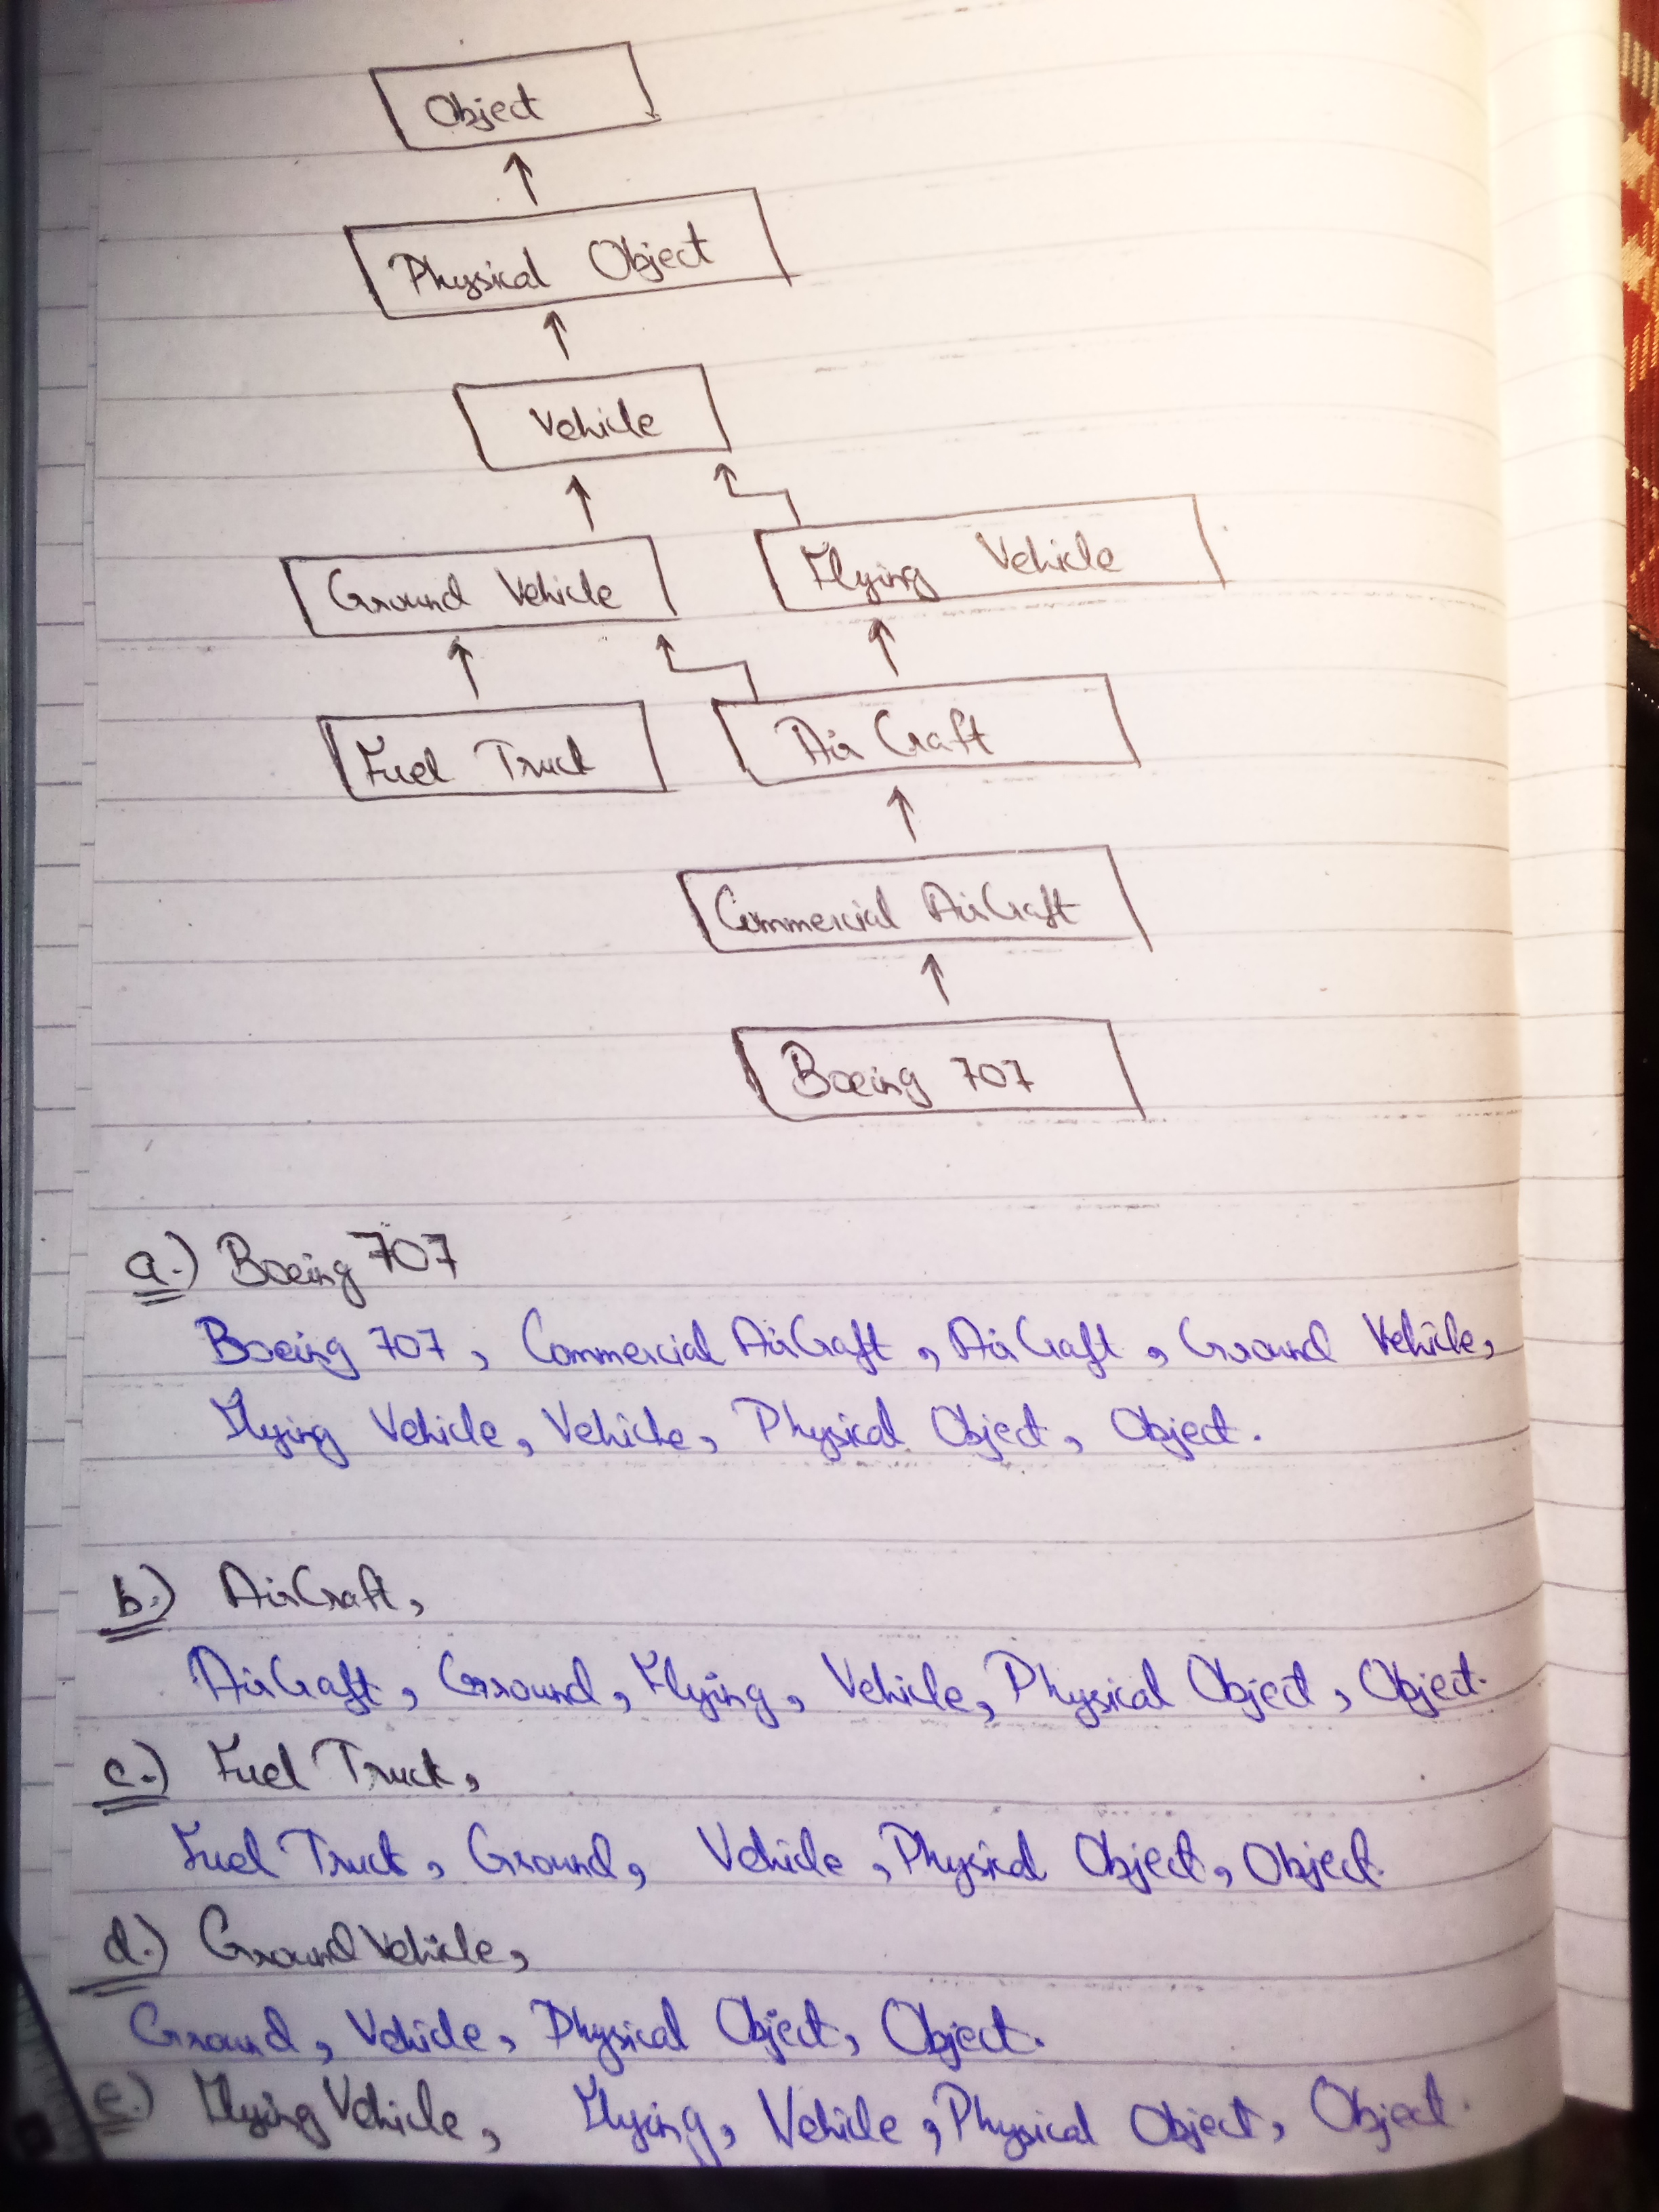 Object
Physical Object
Vehicle
Ground Vehicle
Flying Vehicle
Fuel Truck
Air Craft
Commercial AirCraft
Boeing 707
a.) Boeing 707
Boeing 707, Commercial AirCraft, AirCraft, Ground Vehicle,
Flying Vehicle, Vehicle, Physical Object, Object.
b.) AirCraft,
AirCraft, Ground, Flying, Vehicle, Physical Object, Object.
c.) Fuel Truck,
Fuel Truck, Ground, Vehicle, Physical Object, Object.
d.) Ground Vehicle,
Ground, Vehicle, Physical Object, Object.
e.) Flying Vehicle, Flying, Vehicle, Physical Object, Object.